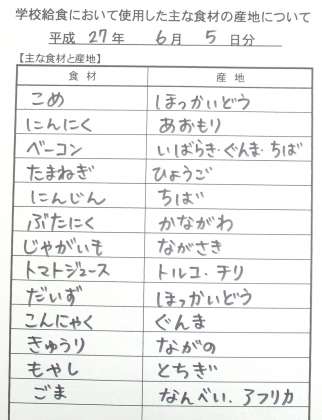 学校給食において使用した主な食材の産地について
平成 27 年 6 月 5 日分
【主な食材と産地】
食材 産地
こめ ほっかいどう
にんにく あおもり
ベーコン いばらき・ぐんま・ちば
たまねぎ ひょうご
にんじん ちば
ぶたにく かながわ
じゃがいも ながさき
トマトジュース トルコ・チリ
だいず ほっかいどう
こんにゃく ぐんま
きゅうり ながの
もやし とちぎ
ごま なんべい、アフリカ